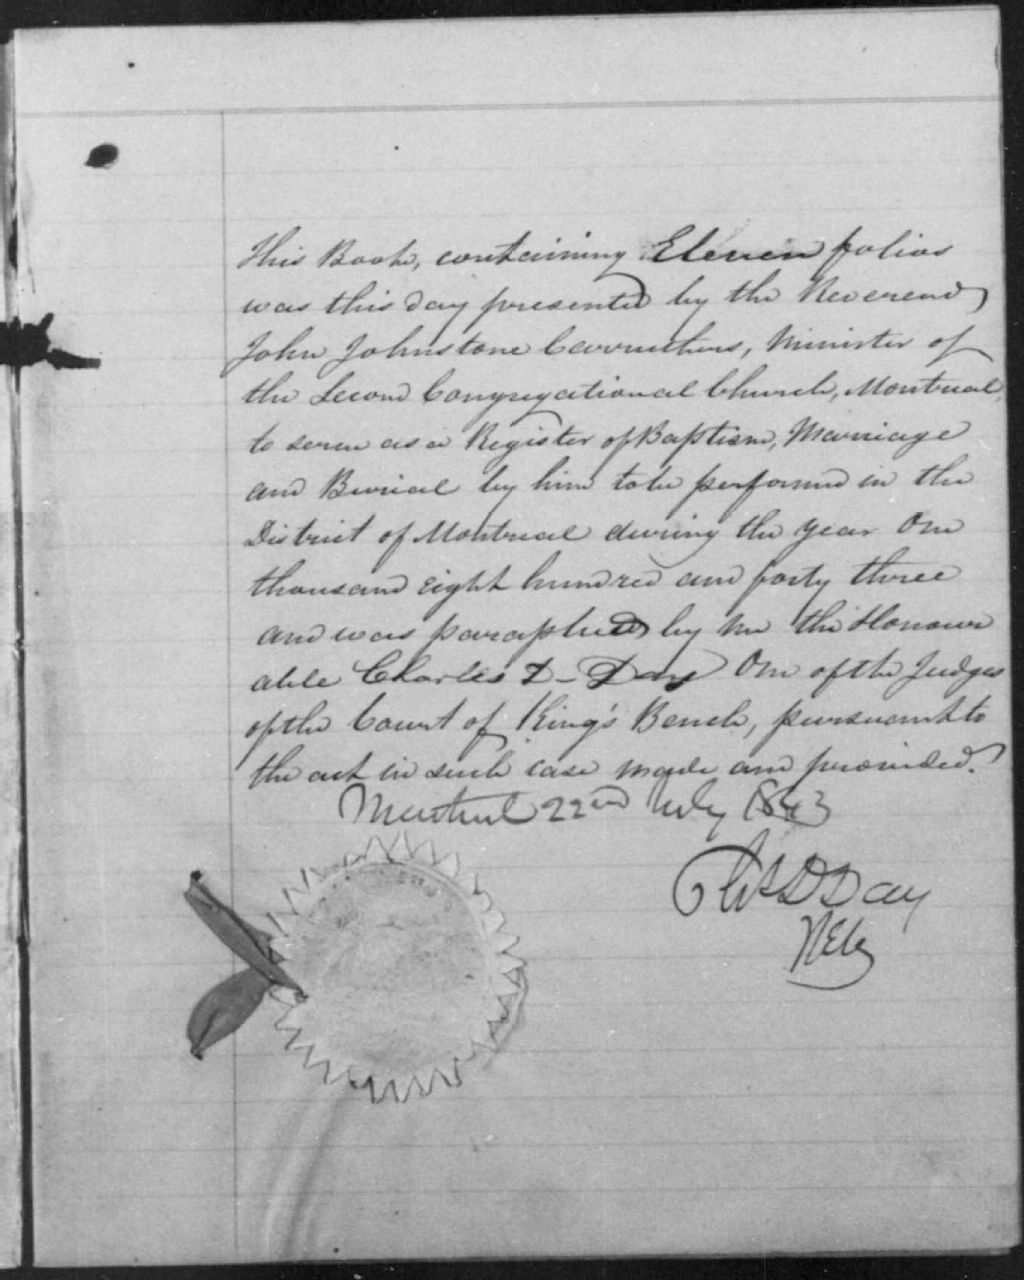 This Book, containing Eleven folios
was this day presented by the Reverend
John Johnstone Carruthers, Minister of
the Second Congregational Church, Montreal,
to serve as a Register of Baptism, Marriage
and Burial by him to be performed in the
District of Montreal during the year One
thousand eight hundred and forty three
and was paraphed by me the Honour
able Charles D- Day One of the Judges
of the Court of King's Bench, pursuant to
the act in such case made and provided.
Montreal 22nd July 1843
Chs D Day